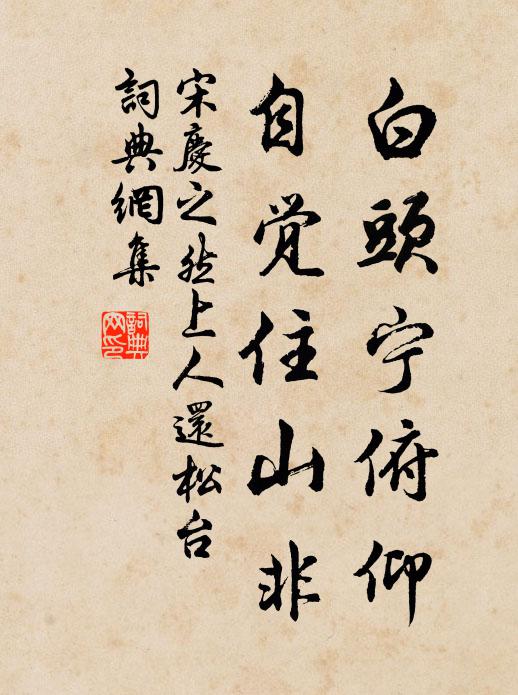 白頭宁俯仰
自觉住山非
宋慶之然上人還松台
詞典網集
詞典网印